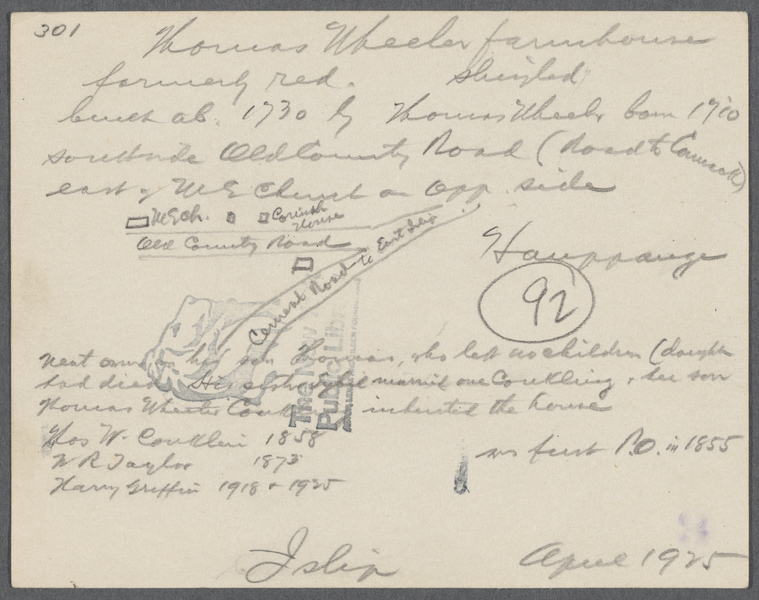 301
Thomas Wheeler farmhouse
formerly red. shingled
built ab. 1730 by Thomas Wheeler born 1710
south side Old County Road (Road to Comack)
east of M E Church on opp. side
M E Ch. Corinth House
Old County Road
Cement Road to East Islip
Hauppauge
92
The New
Public Libr
next owner his son Thomas, who left no children (daughter
had died His sister married one Conkling & her son
Thomas Wheeler Conk inherited the house
Thos W. Conklin 1858
W R Taylor 1873
Harry Griffin 1918 & 1925
ws first P.O. in 1855
Islip
April 1925